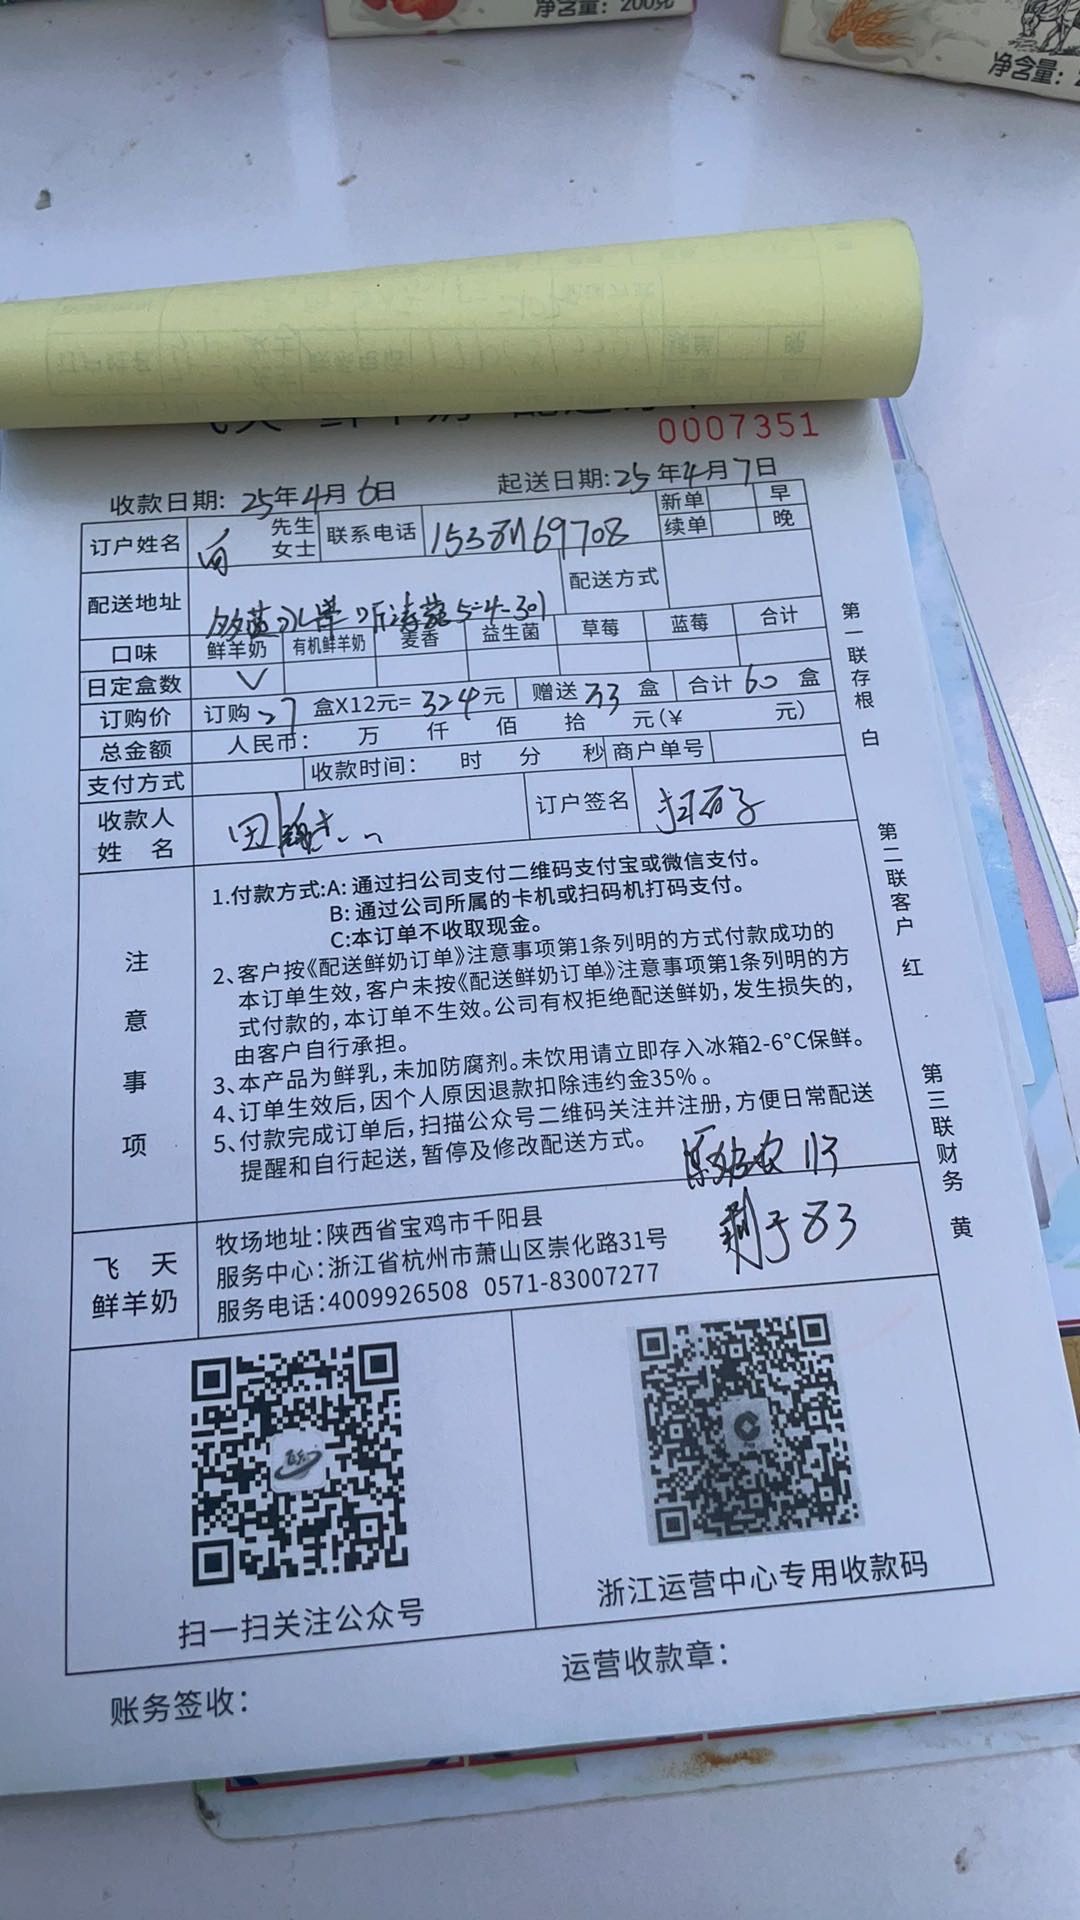 净含量：200克
净含量：
0007351
收款日期: 25年4月6日 起送日期: 25年4月7日
订户姓名 向 先生 女士 联系电话 新单 早
续单 晚
配送地址 5-4-301 配送方式
口味 鲜羊奶 有机鲜羊奶 麦香 益生菌 草莓 蓝莓 合计
日定盒数 ✓
订购价 订购 27 盒X12元= 324元 赠送 33 盒 合计 60 盒
总金额 人民币： 万 仟 佰 拾 元(¥ 元)
支付方式 收款时间： 时 分 秒 商户单号
收款人 姓 名 田 订户签名 扫码
注意事项
1.付款方式:A: 通过扫公司支付二维码支付宝或微信支付。
B: 通过公司所属的卡机或扫码机打码支付。
C:本订单不收取现金。
2、客户按《配送鲜奶订单》注意事项第1条列明的方式付款成功的
本订单生效, 客户未按《配送鲜奶订单》注意事项第1条列明的方
式付款的, 本订单不生效。公司有权拒绝配送鲜奶, 发生损失的,
由客户自行承担。
3、本产品为鲜乳, 未加防腐剂。未饮用请立即存入冰箱2-6°C保鲜。
4、订单生效后, 因个人原因退款扣除违约金35% 。
5、付款完成订单后, 扫描公众号二维码关注并注册, 方便日常配送
提醒和自行起送, 暂停及修改配送方式。
113
剩于83
飞 天
鲜羊奶
牧场地址: 陕西省宝鸡市千阳县
服务中心: 浙江省杭州市萧山区崇化路31号
服务电话: 4009926508 0571-83007277
扫一扫关注公众号
浙江运营中心专用收款码
账务签收：
运营收款章：
第一联存根 白
第二联客户 红
第三联财务 黄